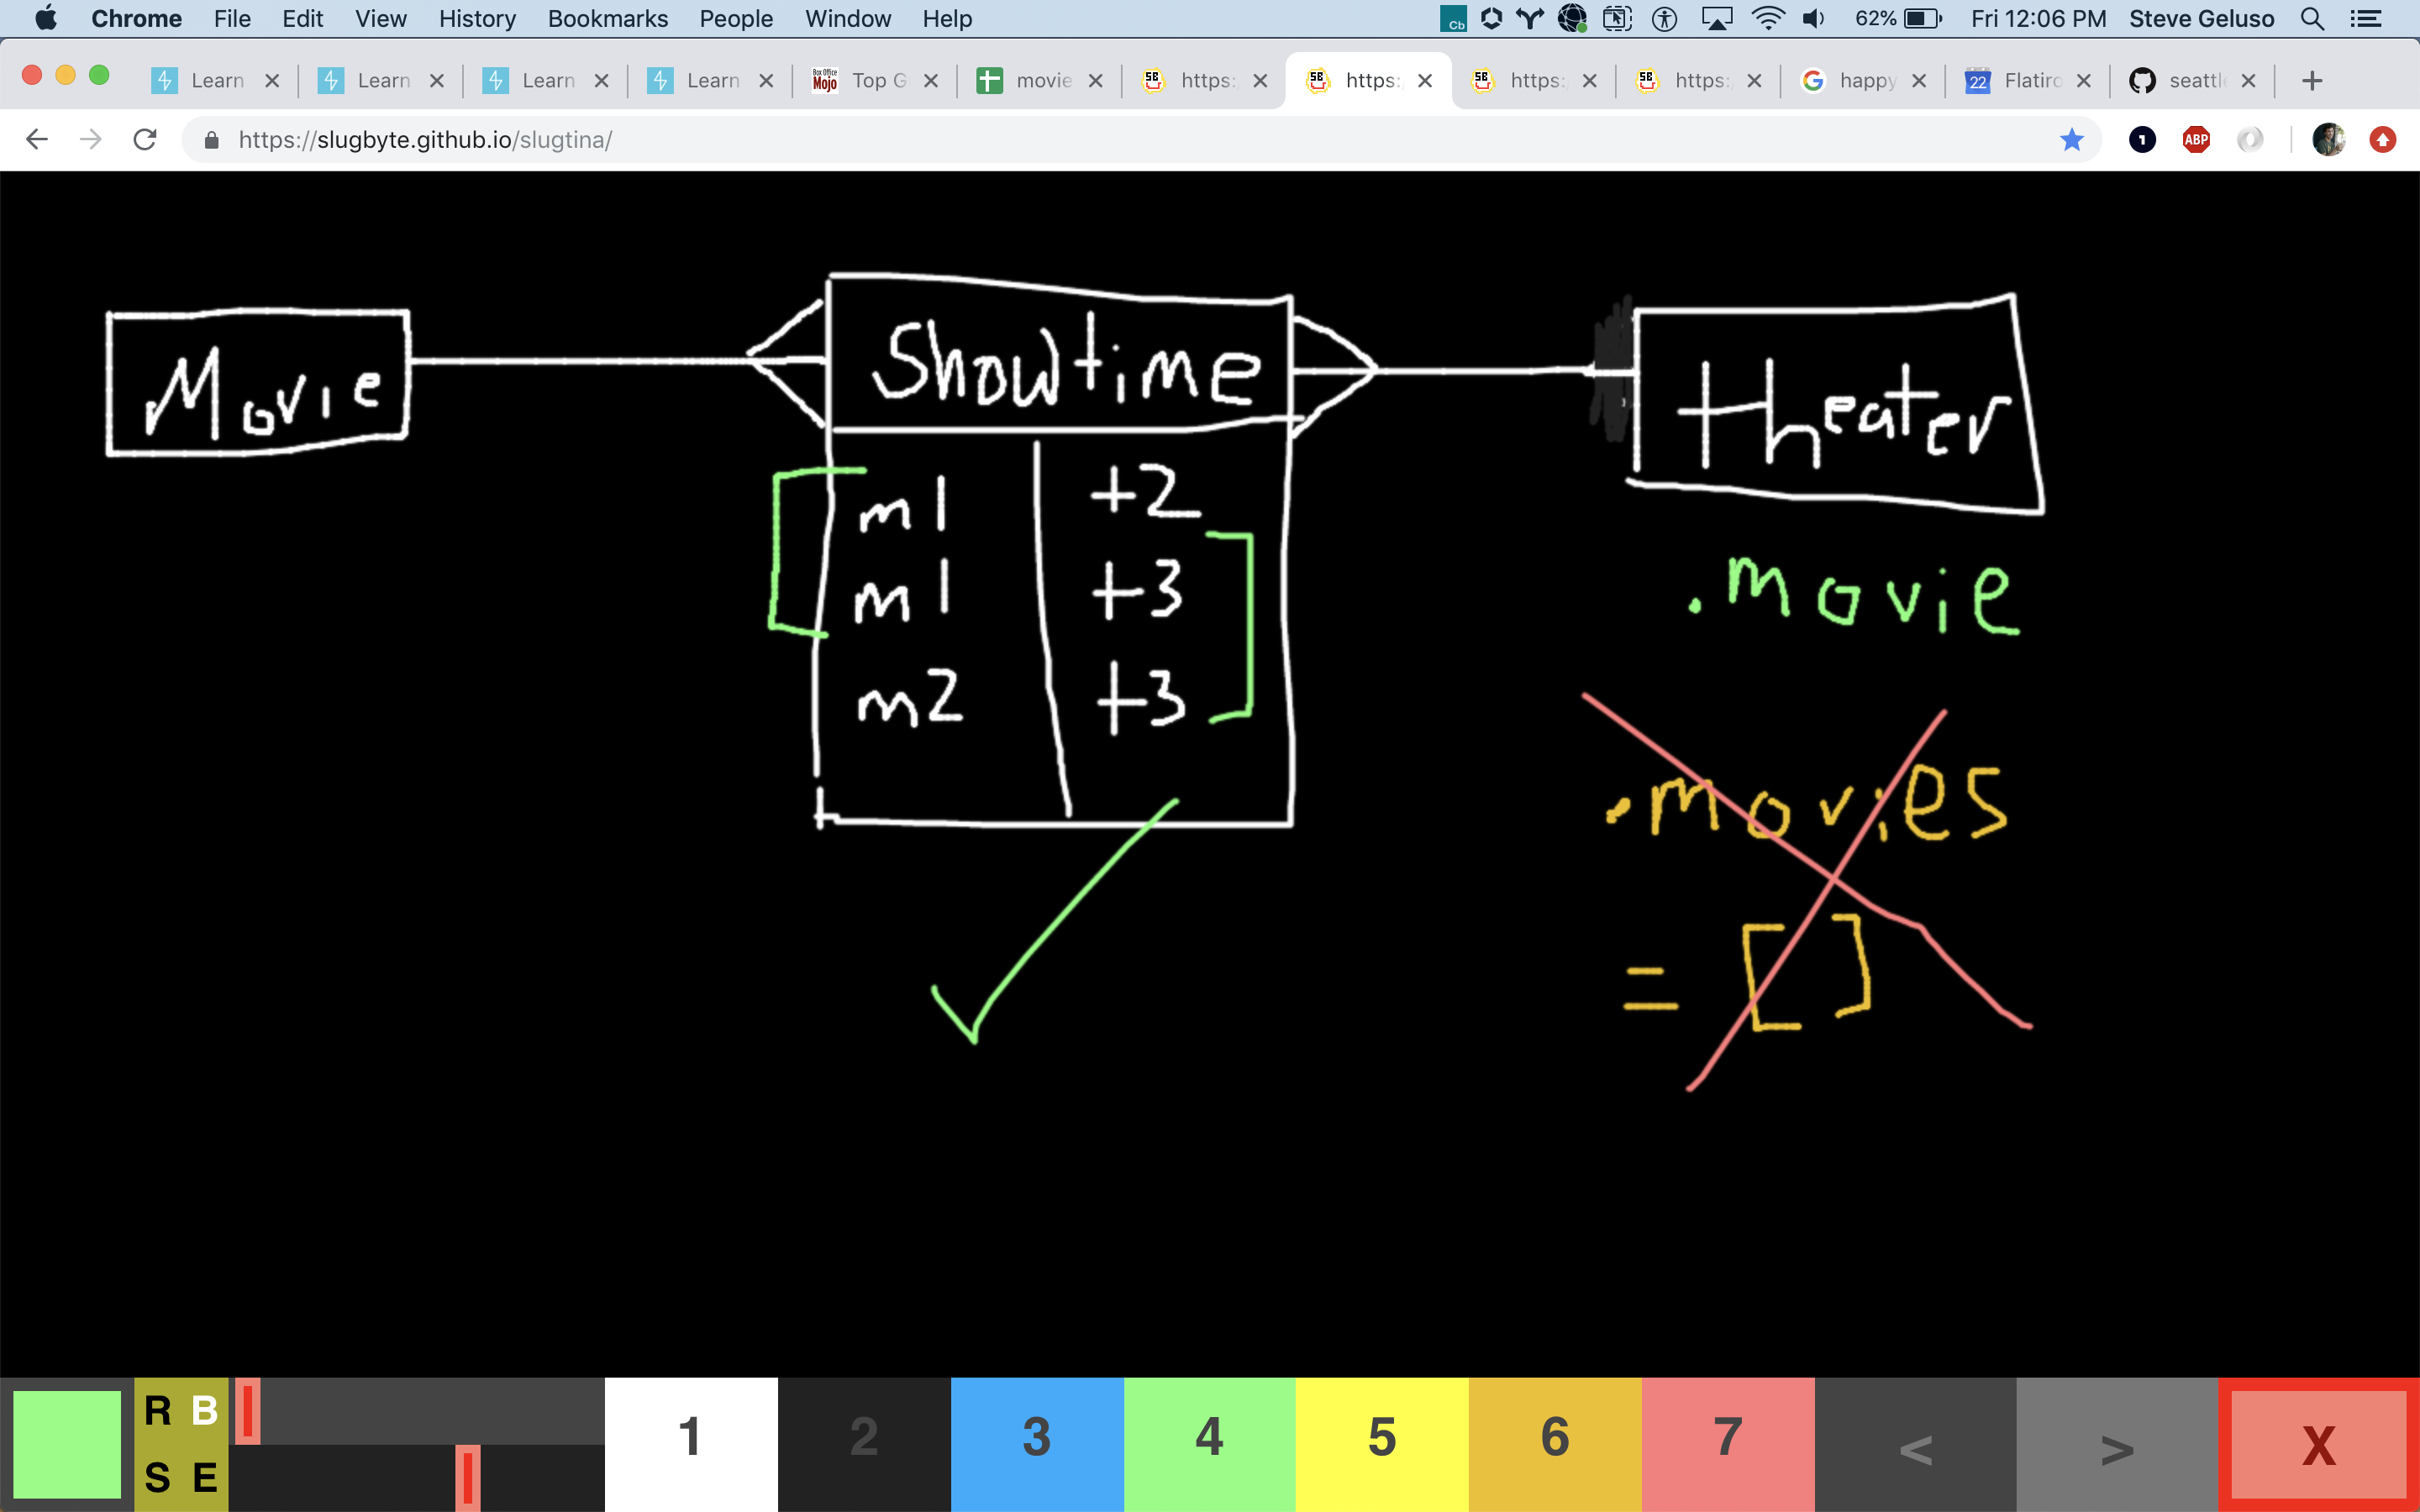 Chrome File Edit View History Bookmarks People Window Help Cb 62% Fri 12:06 PM Steve Geluso
Learn Learn Learn Learn Box Office Mojo Top G movie SB https: SB https: SB https: SB https: G happy 22 Flatiro seattl
https://slugbyte.github.io/slugtina/ 1 ABP
Movie Showtime theater
m1 t2
m1 t3
m2 t3
.movie
.movies
= []
R B
S E
1 2 3 4 5 6 7 < > X